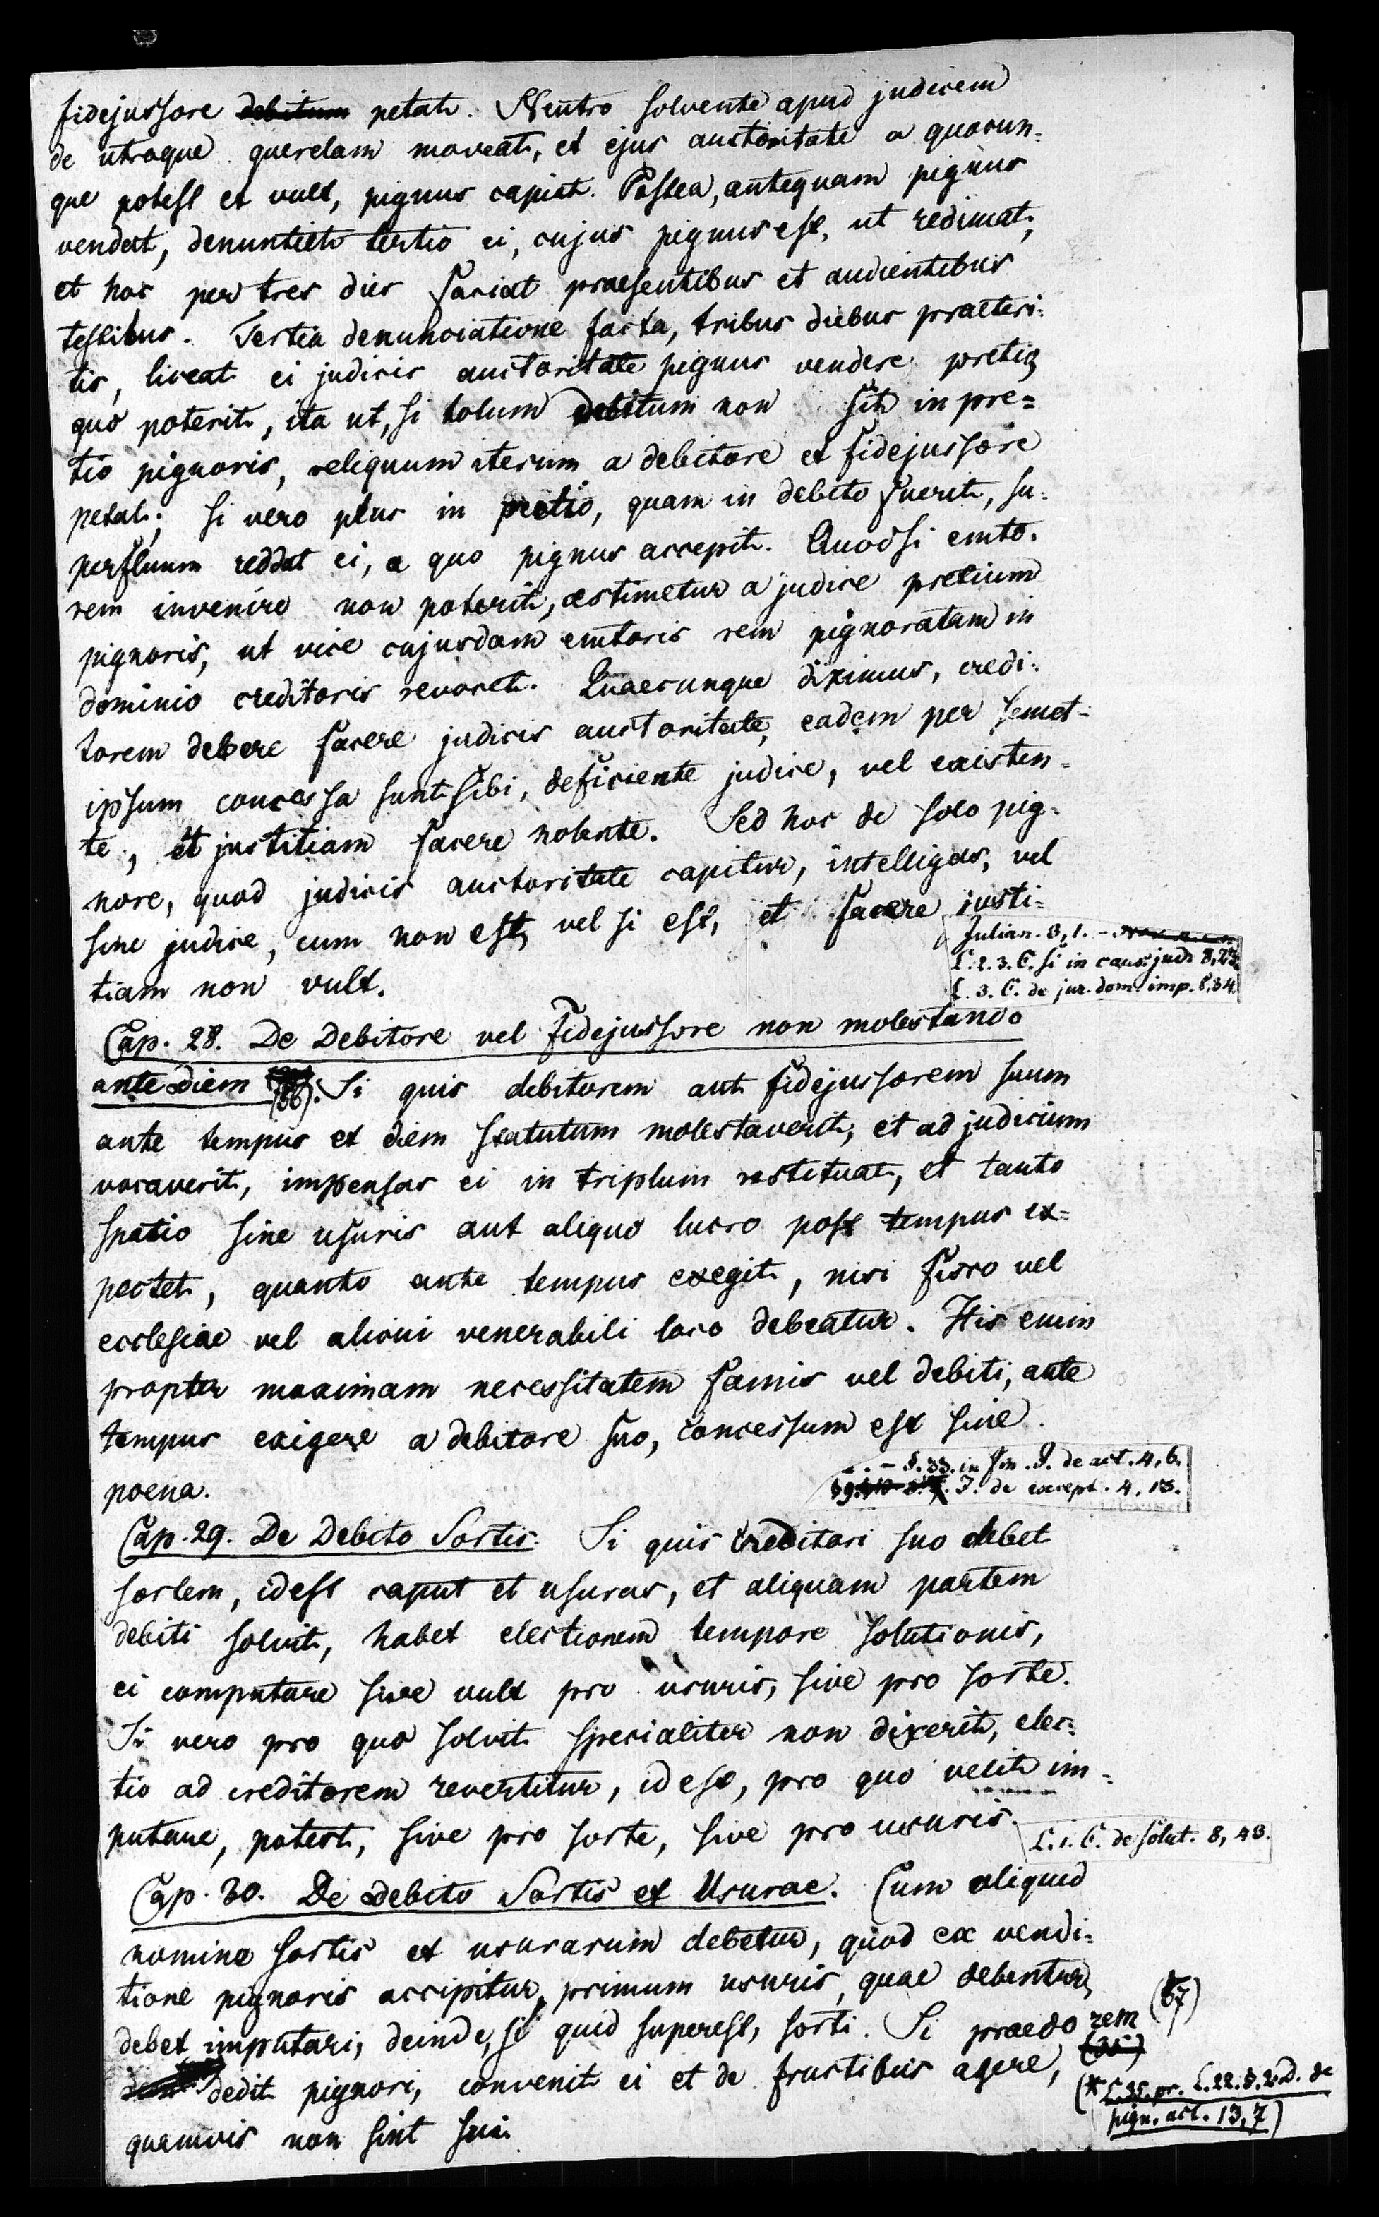 fidejussore ~~debitum~~ petat. Neutro solvente apud judicem
de utroque querelam moveat, et ejus auctoritate a quocun-
que potest et vult, pignus capiat. Postea, antequam pignus
vendat, denuntiet tertio ei, cujus pignus est, ut redimat,
et hoc per tres dies faciat praesentibus et audientibus
testibus. Tertia denunciatione facta, tribus diebus praeteri-
tis, liceat ei judicis auctoritate pignus vendere pretio,
quo poterit, ita ut, si totum debitum non sit in pre=
tio pignoris, reliquum iterum a debitore et fidejussore
petat; si vero plus in pretio, quam in debito fuerit, su-
perfluum reddat ei, a quo pignus accepit. Quodsi emto-
rem invenire non poterit, aestimetur a judice pretium
pignoris, ut vice cujusdam emtoris rem pignoratam in
dominio creditoris revocet. Quaecunque diximus, credi-
torem debere facere judicis auctoritate, eadem per semet-
ipsum concessa sunt sibi, deficiente judice, vel existen-
te, et justitiam facere nolente. Sed hoc de solo pig-
nore, quod judicis auctoritate capitur, intelligas, vel
sine judice, cum non est, vel si est, et facere justi=
tiam non vult.
Julian. 3, 1. -
L. 2. 3. C. si in caus. jud. 8, 23.
L. 3. C. de jur. dom. imp. 8, 34.
Cap. 28. De Debitore vel Fidejussore non molestando
ante diem (36). Si quis debitorem aut fidejussorem suum
ante tempus et diem statutum molestaverit, et ad judicium
vocaverit, impensas ei in triplum restituat, et tanto
spatio sine usuris aut aliquo lucro post tempus ex=
pectet, quanto ante tempus exegit, nisi fisco vel
ecclesiae vel alicui venerabili loco debeatur. His enim
propter maximam necessitatem famis vel debiti, ante
tempus exigere a debitore suo, concessum est sine
poena.
§. 33. in fin. J. de act. 4, 6.
J. de except. 4, 13.
Cap. 29. De Debito Sortis. Si quis creditori suo debet
sortem, id est caput et usuras, et aliquam partem
debiti solvit, habet electionem tempore solutionis,
ei computare sive vult pro usuris, sive pro sorte.
Si vero pro quo solvit specialiter non dixerit, elec-
tio ad creditorem revertitur, id est, pro quo velit im-
putare, potest, sive pro sorte, sive pro usuris.
L. 1. C. de solut. 8, 43.
Cap. 30. De Debito Sortis et Usurae. Cum aliquid
nomine sortis et usurarum debetur, quod ex vendi-
tione pignoris accipitur, primum usuris, quae debentur,
debet imputari, deinde, si quid superest, sorti. Si praedo rem (37)
dedit pignori, convenit ei et de fructibus agere,
quamvis non sint sui.
(* L. 35. pr. L. 22. §. 2. D. de
pign. act. 13, 7)